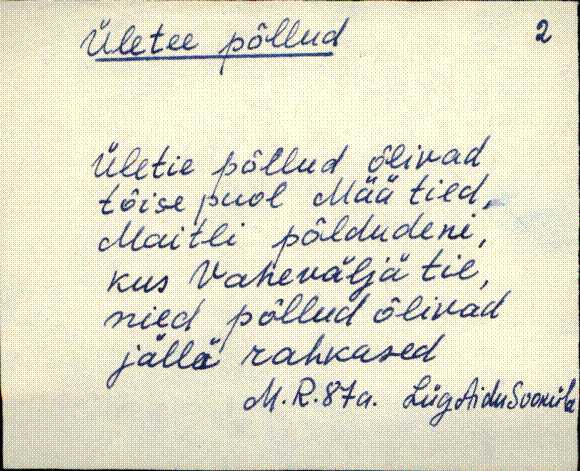 Ületee põllud 2
Ületie põllud õlivad
tõise puol Mää tied,
Maitli põldudeni,
kus Vaheväljä tie,
nied põllud õlivad
jällä rahkased
M.R.87a. Lüg Aidu Sooküla